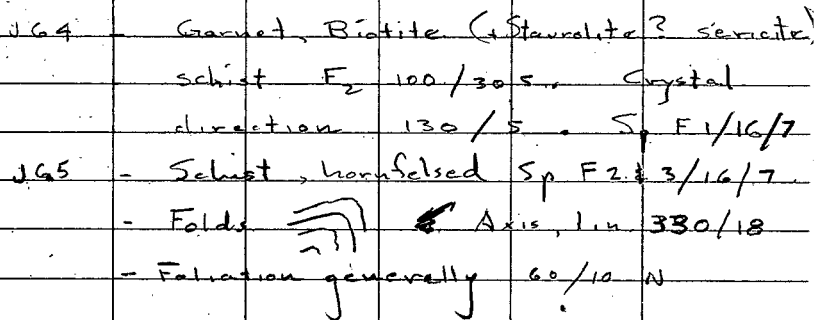 JG4 - Garnet, Biotite (+Staurolite? sericite)
schist F2 100/30 S. Crystal
direction 130/5. Sp F1/16/7
JG5 - Schist, hornfelsed Sp F2 & 3/16/7.
- Folds Axis, lin 330/18
- Foliation generally 60/10 N